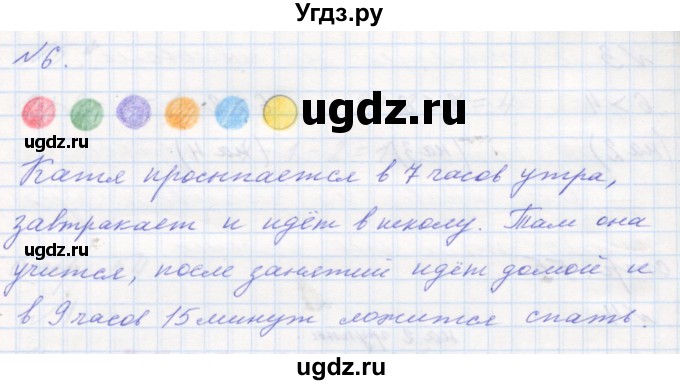 Угдз.ру
№6.
ugdz.ru
Катя просыпается в 7 часов утра,
ugdz.ru
завтракает и идёт в школу. Там она
ugdz.ru
учится, после занятий идёт домой и
в 9 часов 15 минут ложится спать.
ugdz.ru
ugdz.ru